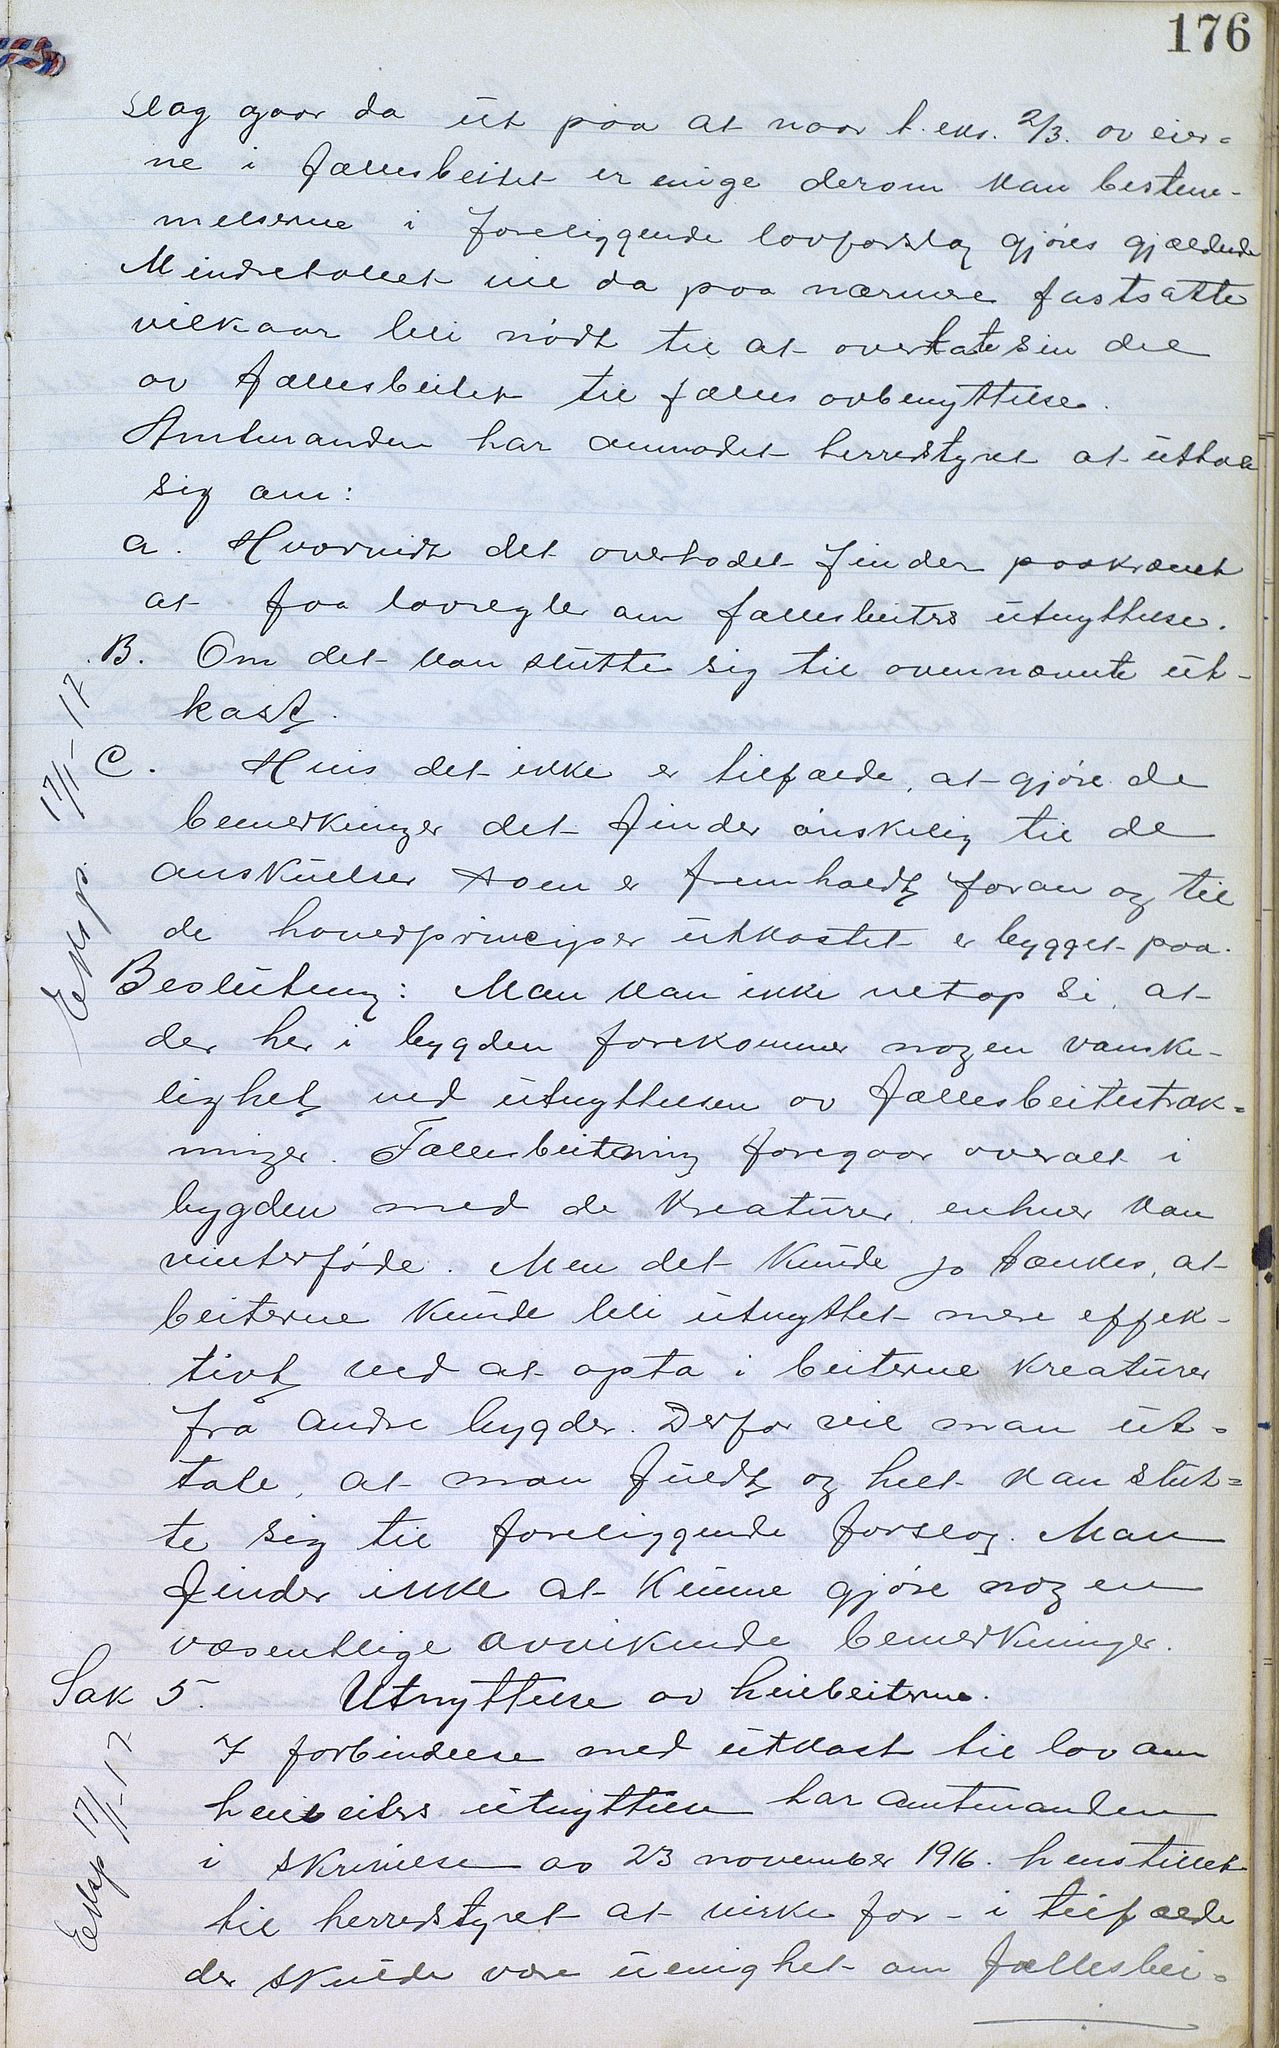 176
slag gaar da ut paa at naar t. eks. 2/3. av eier-
ne i fællesbeitet er enige derom kan bestem-
melserne i foreliggende lovforslag gjøres gjældende
Mindretallet vil da paa nærmere fastsatte
vilkaar bli nødt til at overlate sin del
av fællesbeitet til fælles avbenyttelse.
Amtmanden har anmodet herredstyret at uttale
sig om:
a. Hvorvidt det overhodet finder paakrævet
at faa lovregler om fællesbeiters utnyttelse.
B. Om det kan slutte sig til ovennævnte ut-
kast.
C. Hvis det ikke er tilfælde, at gjøre de
bemerkninger det finder ønskelig til de
anskuelser som er fremholdt foran og til
de hovedprinciper utkastet er bygget paa.
Eksp. 17/1-17
Beslutning: Man kan ikke netop si, at
der her i bygden forekommer nogen vanske-
lighet ved utnyttelsen av fællesbeitestræk-
ninger. Fællesbeitening foregaar overalt i
bygden med de kreaturer, enhver kan
vinterføde. Men det kunde jo tænkes, at
beiterne kunde bli utnyttet mere effek-
tivt ved at opta i beiterne kreaturer
fra andre bygder. Derfor vil man ut-
tale, at man fuldt og helt kan slut-
te sig til foreliggende forslag. Man
finder ikke at kunne gjøre nogen
væsentlige avvikende bemerkninger.
Sak 5. Utnyttelse av heiebeiterne.
I forbindelse med utkast til lov om
heiebeiters utnyttelse har amtmanden
i skrivelse av 23 november 1916. henstillet
til herredstyret at virke for - i tilfælde
der skulde være uenighet om fællesbei-
Eksp 17/1-17